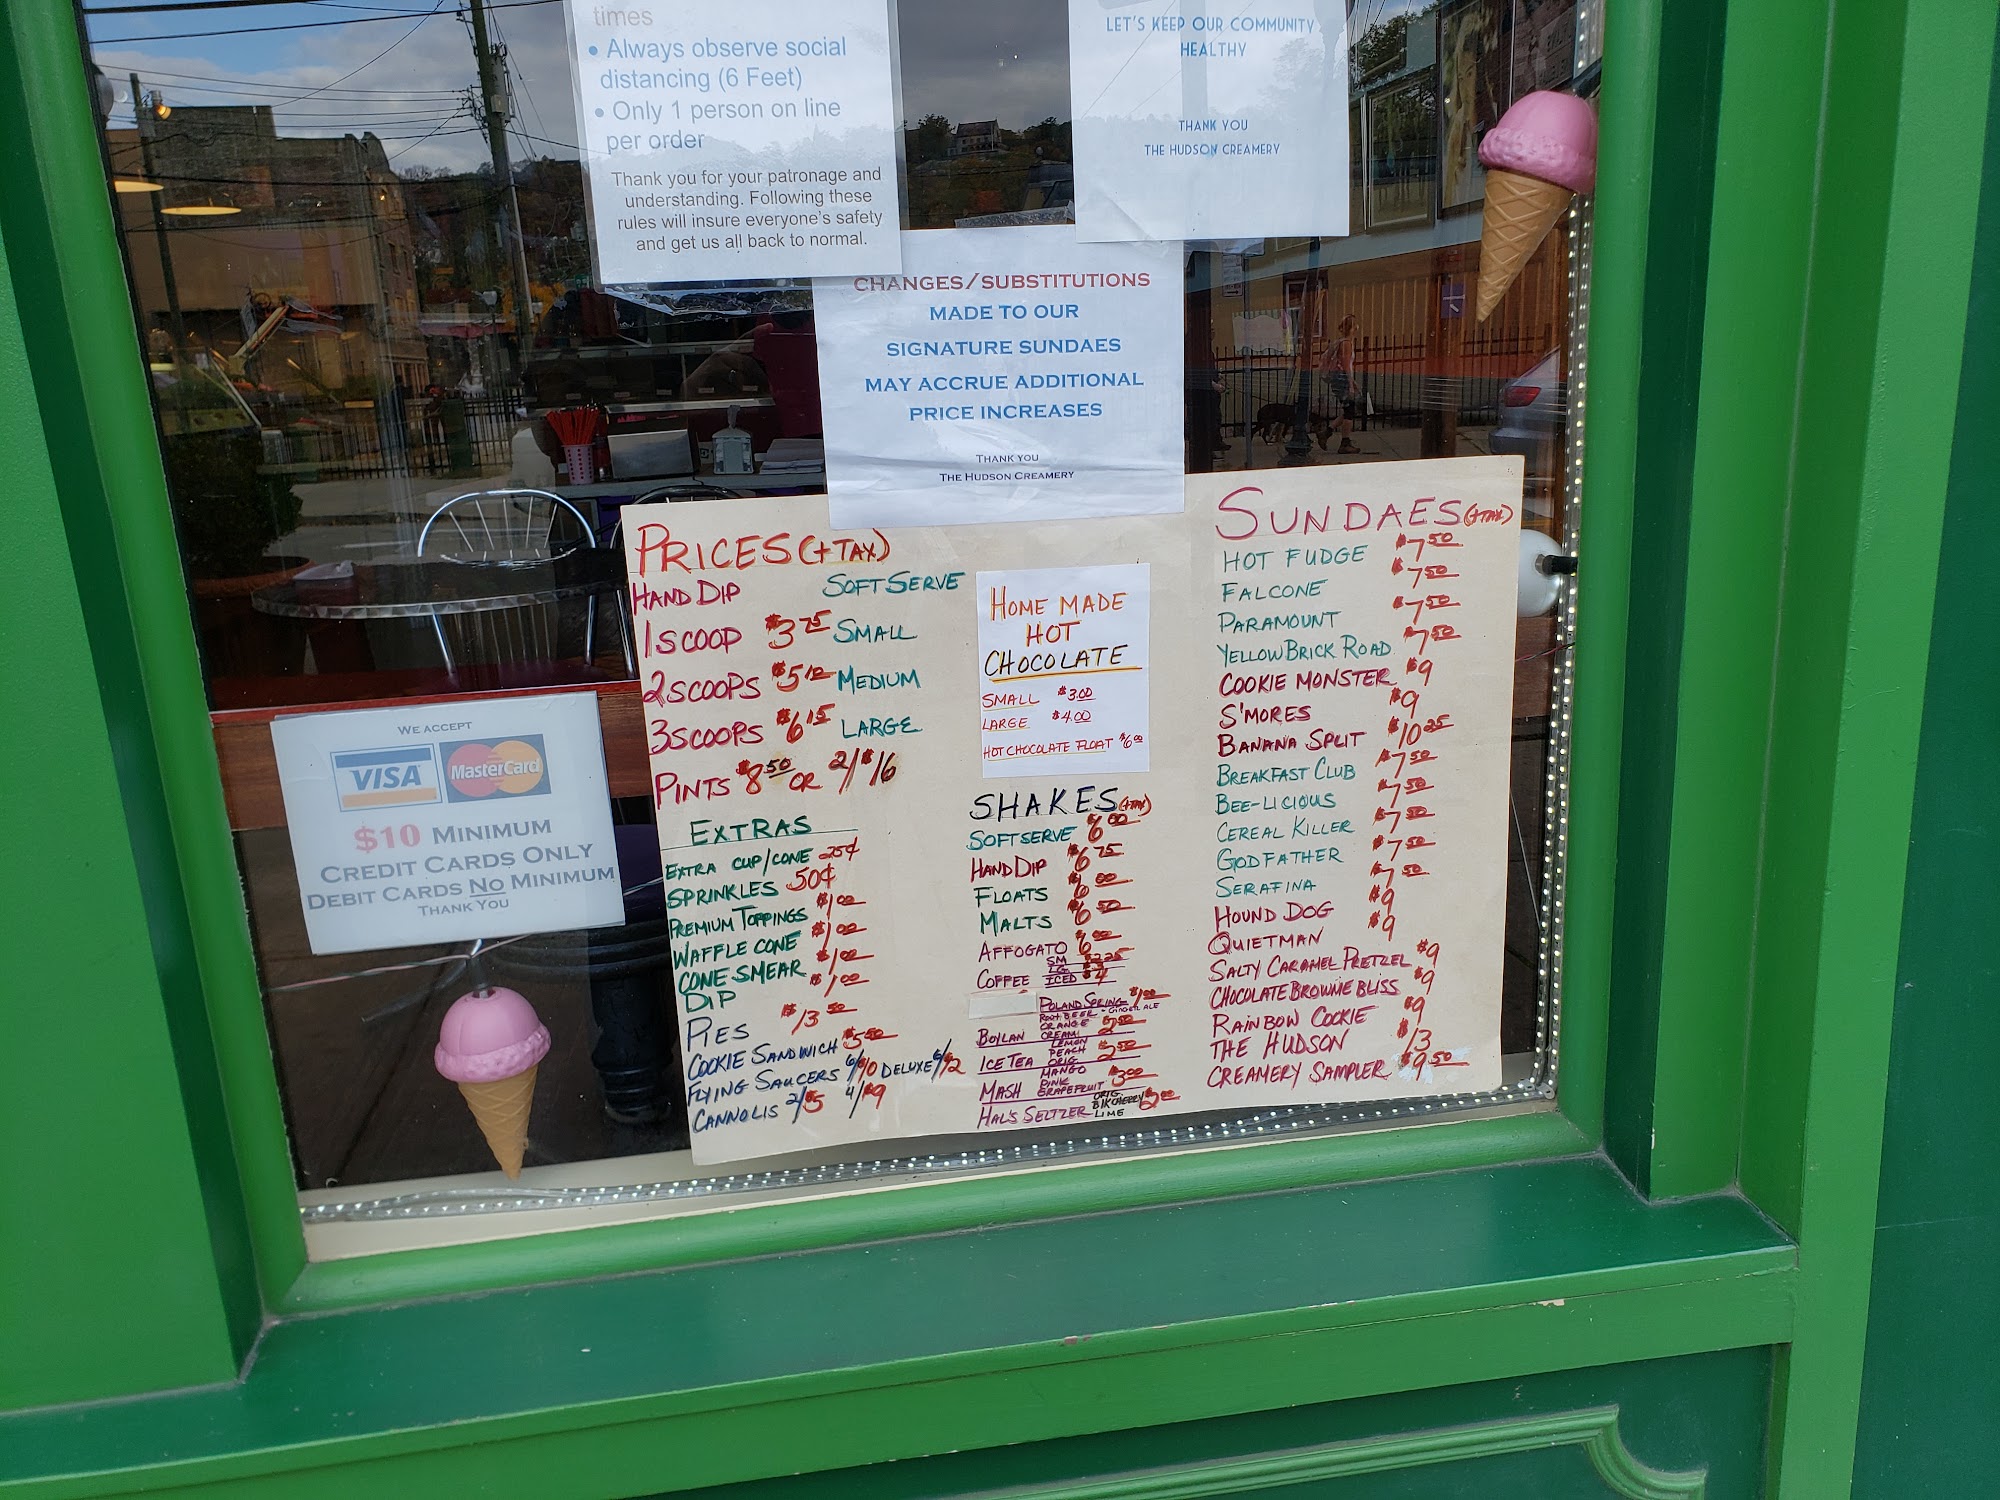 times
• Always observe social
distancing (6 Feet)
• Only 1 person on line
per order
Thank you for your patronage and
understanding. Following these
rules will insure everyone's safety
and get us all back to normal.
LET'S KEEP OUR COMMUNITY
HEALTHY
THANK YOU
THE HUDSON CREAMERY
CHANGES/SUBSTITUTIONS
MADE TO OUR
SIGNATURE SUNDAES
MAY ACCRUE ADDITIONAL
PRICE INCREASES
THANK YOU
THE HUDSON CREAMERY
WE ACCEPT
VISA MasterCard
$10 MINIMUM
CREDIT CARDS ONLY
DEBIT CARDS NO MINIMUM
THANK YOU
PRICES (+TAX)
HAND DIP SOFT SERVE
1 SCOOP $3 75 SMALL
2 SCOOPS $5 MEDIUM
3 SCOOPS $6 15 LARGE
PINTS $8 50 OR 2/$16
EXTRAS
EXTRA CUP/CONE 25¢
SPRINKLES 50¢
PREMIUM TOPPINGS $1 00
WAFFLE CONE $1 00
CONE SMEAR $1 00
DIP $1 00
PIES $13 50
COOKIE SANDWICH $5 50
FLYING SAUCERS 6/$10 DELUXE 6/$12
CANNOLIS 2/$5 4/$9
HOME MADE
HOT
CHOCOLATE
SMALL $3.00
LARGE $4.00
HOT CHOCOLATE FLOAT $6 00
SHAKES (+TAX)
SOFT SERVE $6 00
HAND DIP $6 75
FLOATS $6 00
MALTS $6 50
AFFOGATO $6 00
COFFEE SM $2.25
LG. $3
ICED $4
POLAND SPRING $1 00
ROOT BEER - GINGER ALE
BOYLAN ORANGE CREAM $2 50
ICE TEA LEMON PEACH ORIG $2 50
MASH MANGO PINK GRAPEFRUIT $3 00
HAL'S SELTZER ORIG. BlK CHERRY LIME $2 00
SUNDAES (+TAX)
HOT FUDGE $7 50
FALCONE $7 50
PARAMOUNT $7 50
YELLOW BRICK ROAD $7 50
COOKIE MONSTER $9
S'MORES $9
BANANA SPLIT $10 25
BREAKFAST CLUB $7 50
BEE-LICIOUS $7 50
CEREAL KILLER $7 50
GODFATHER $7 50
SERAFINA $7 50
HOUND DOG $9
QUIETMAN $9
SALTY CARAMEL PRETZEL $9
CHOCOLATE BROWNIE BLISS $9
RAINBOW COOKIE $9
THE HUDSON $13
CREAMERY SAMPLER $9 50